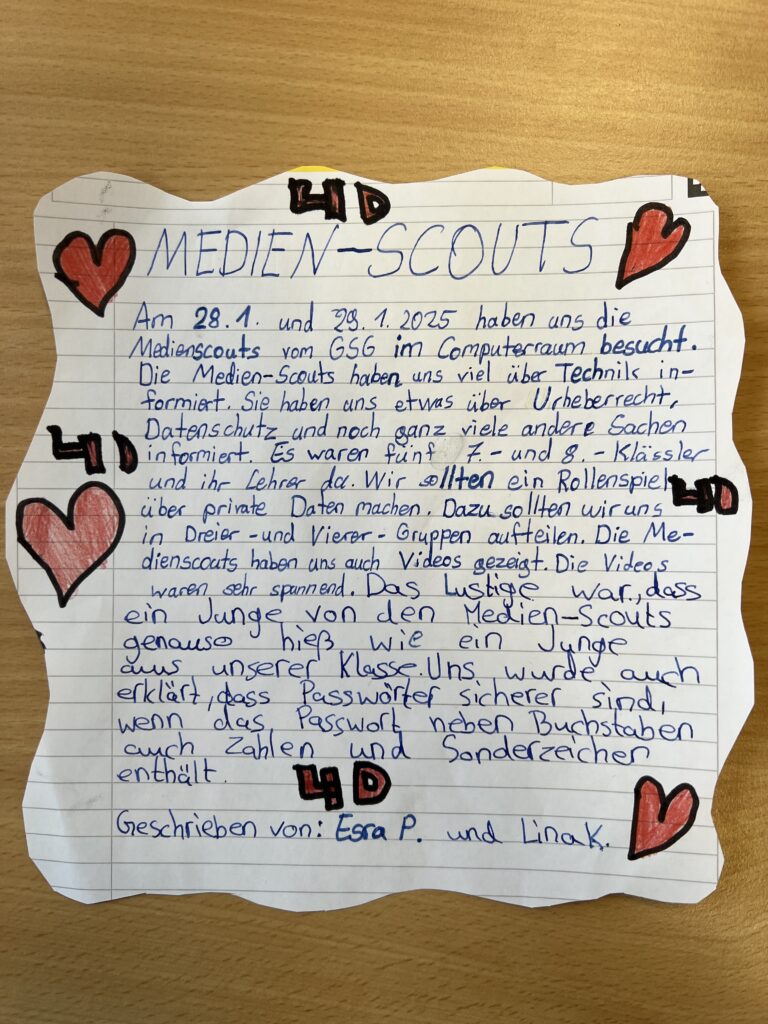 4D
MEDIEN-SCOUTS
Am 28.1. und 29.1.2025 haben uns die
Medienscouts vom GSG im Computerraum besucht.
Die Medien-Scouts haben uns viel über Technik in-
formiert. Sie haben uns etwas über Urheberrecht,
Datenschutz und noch ganz viele andere Sachen
informiert. Es waren fünf 7.- und 8.-Klässler
4D
und ihr Lehrer da. Wir sollten ein Rollenspiel
4D
über private Daten machen. Dazu sollten wir uns
in Dreier-und Vierer-Gruppen aufteilen. Die Me-
dienscouts haben uns auch Videos gezeigt. Die Videos
waren sehr spannend. Das Lustige war, dass
ein Junge von den Medien-Scouts
genauso hieß wie ein Junge
aus unserer Klasse. Uns wurde auch
erklärt, dass Passwörter sicherer sind,
wenn das Passwort neben Buchstaben
auch Zahlen und Sonderzeichen
enthält.
4D
Geschrieben von: Esra P. und Lina K.